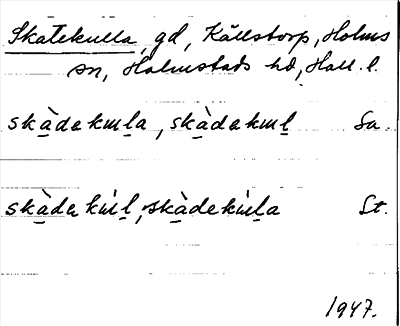 Skatekulla, gd, Källstorp, Holms
sn, Halmstads hd, Hall. l.
skàdakuḻa, skàdakuḻ Sa.
skàdakùḻ, skàdekùḻa St.
1947.